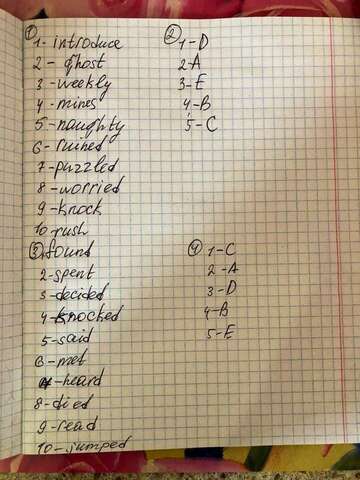 ①
1- introduce
2- ghost
3- weekly
4- mines
5- naughty
6- ruined
7- puzzled
8- worried
9- knock
10 rush
②
1-D
2-A
3-E
4-B
5-C
③ found
2-spent
3-decided
4-knocked
5-said
6-met
7-heard
8-died
9-read
10-jumped
④ 1-C
2-A
3-D
4-B
5-E